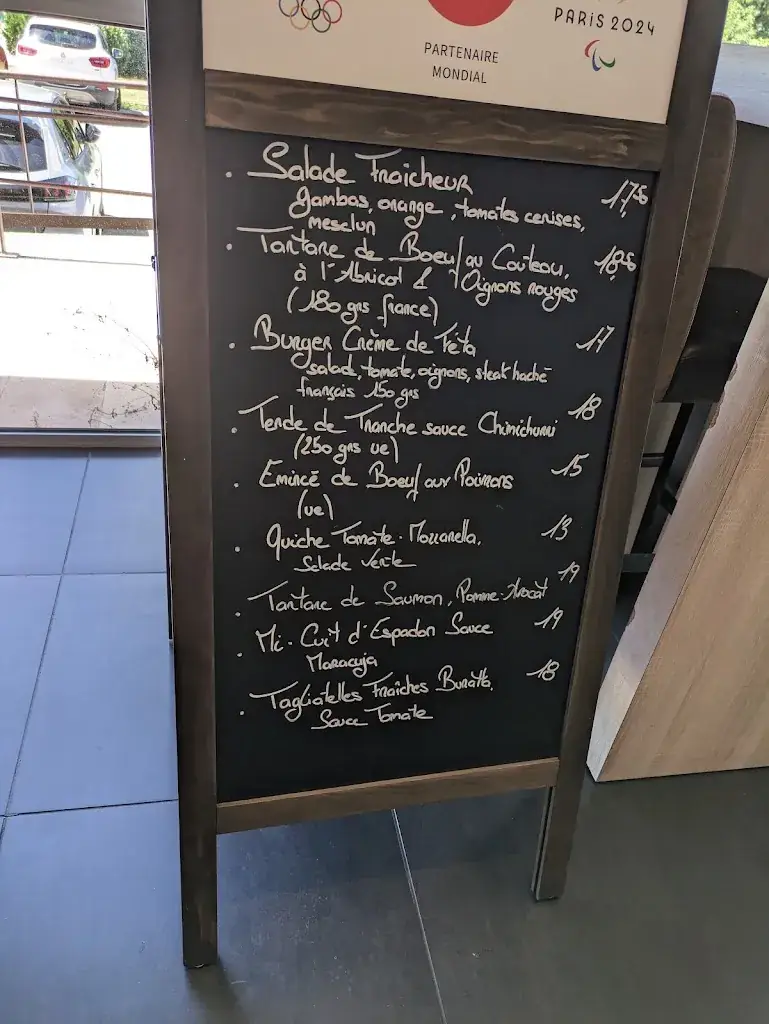 PARIS 2024
PARTENAIRE
MONDIAL
. Salade Fraîcheur 17,50
gambas, orange, tomates cerises,
mesclun
. Tartare de Boeuf au Couteau, 18,50
à l'Abricot & Oignons rouges
(180 grs france)
. Burger Crème de Féta 17
salad, tomate, oignons, steak haché
français 150 grs
. Tende de Tranche sauce Chimichurri 18
(250 grs ue)
. Emincé de Boeuf aux Poivrons 15
(ue)
. Quiche Tomate-Mozzarella, 13
Salade Verte
. Tartare de Saumon, Pomme-Avocat 19
. Mi-Cuit d'Espadon Sauce 19
Maracuja
. Tagliatelles Fraîches Buratta, 18
Sauce Tomate